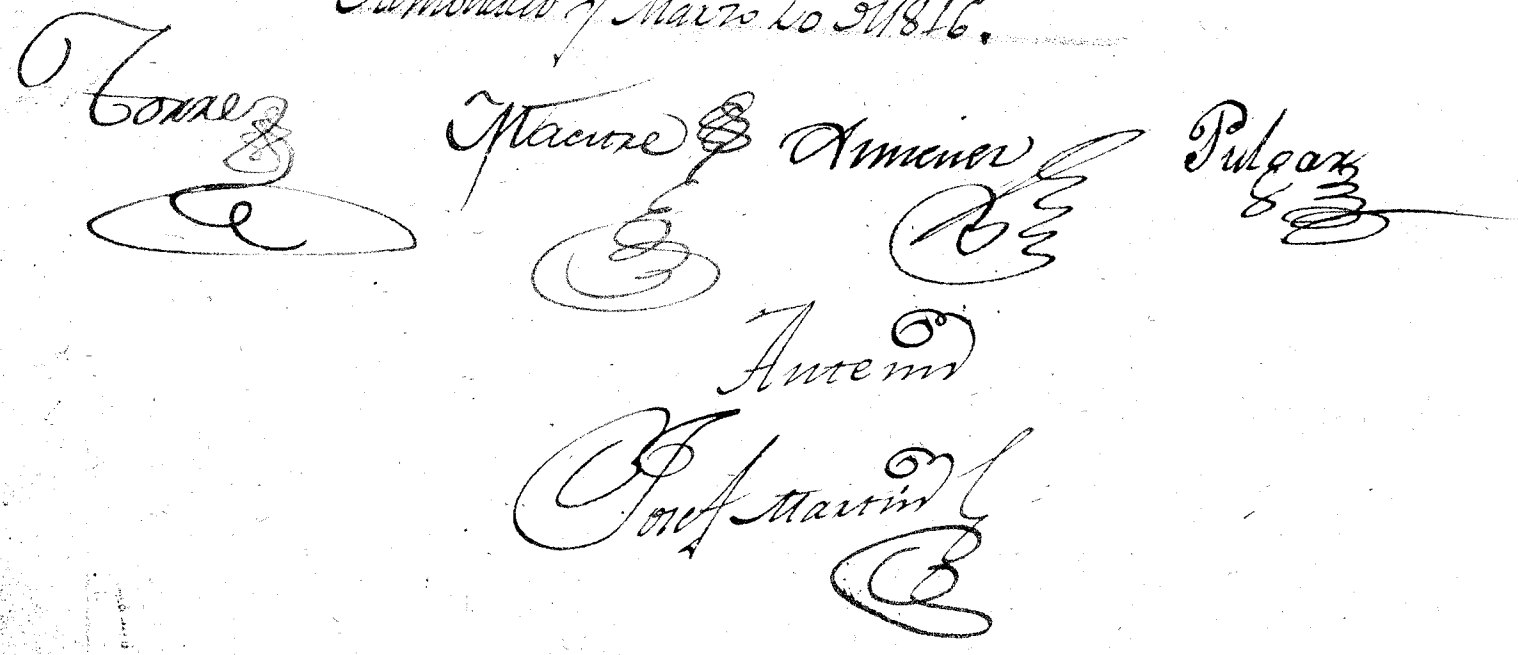 y Marzo 20 de 1816.
Torre Maestre Ximenez Pulgar
Ante mi
Josef Martin